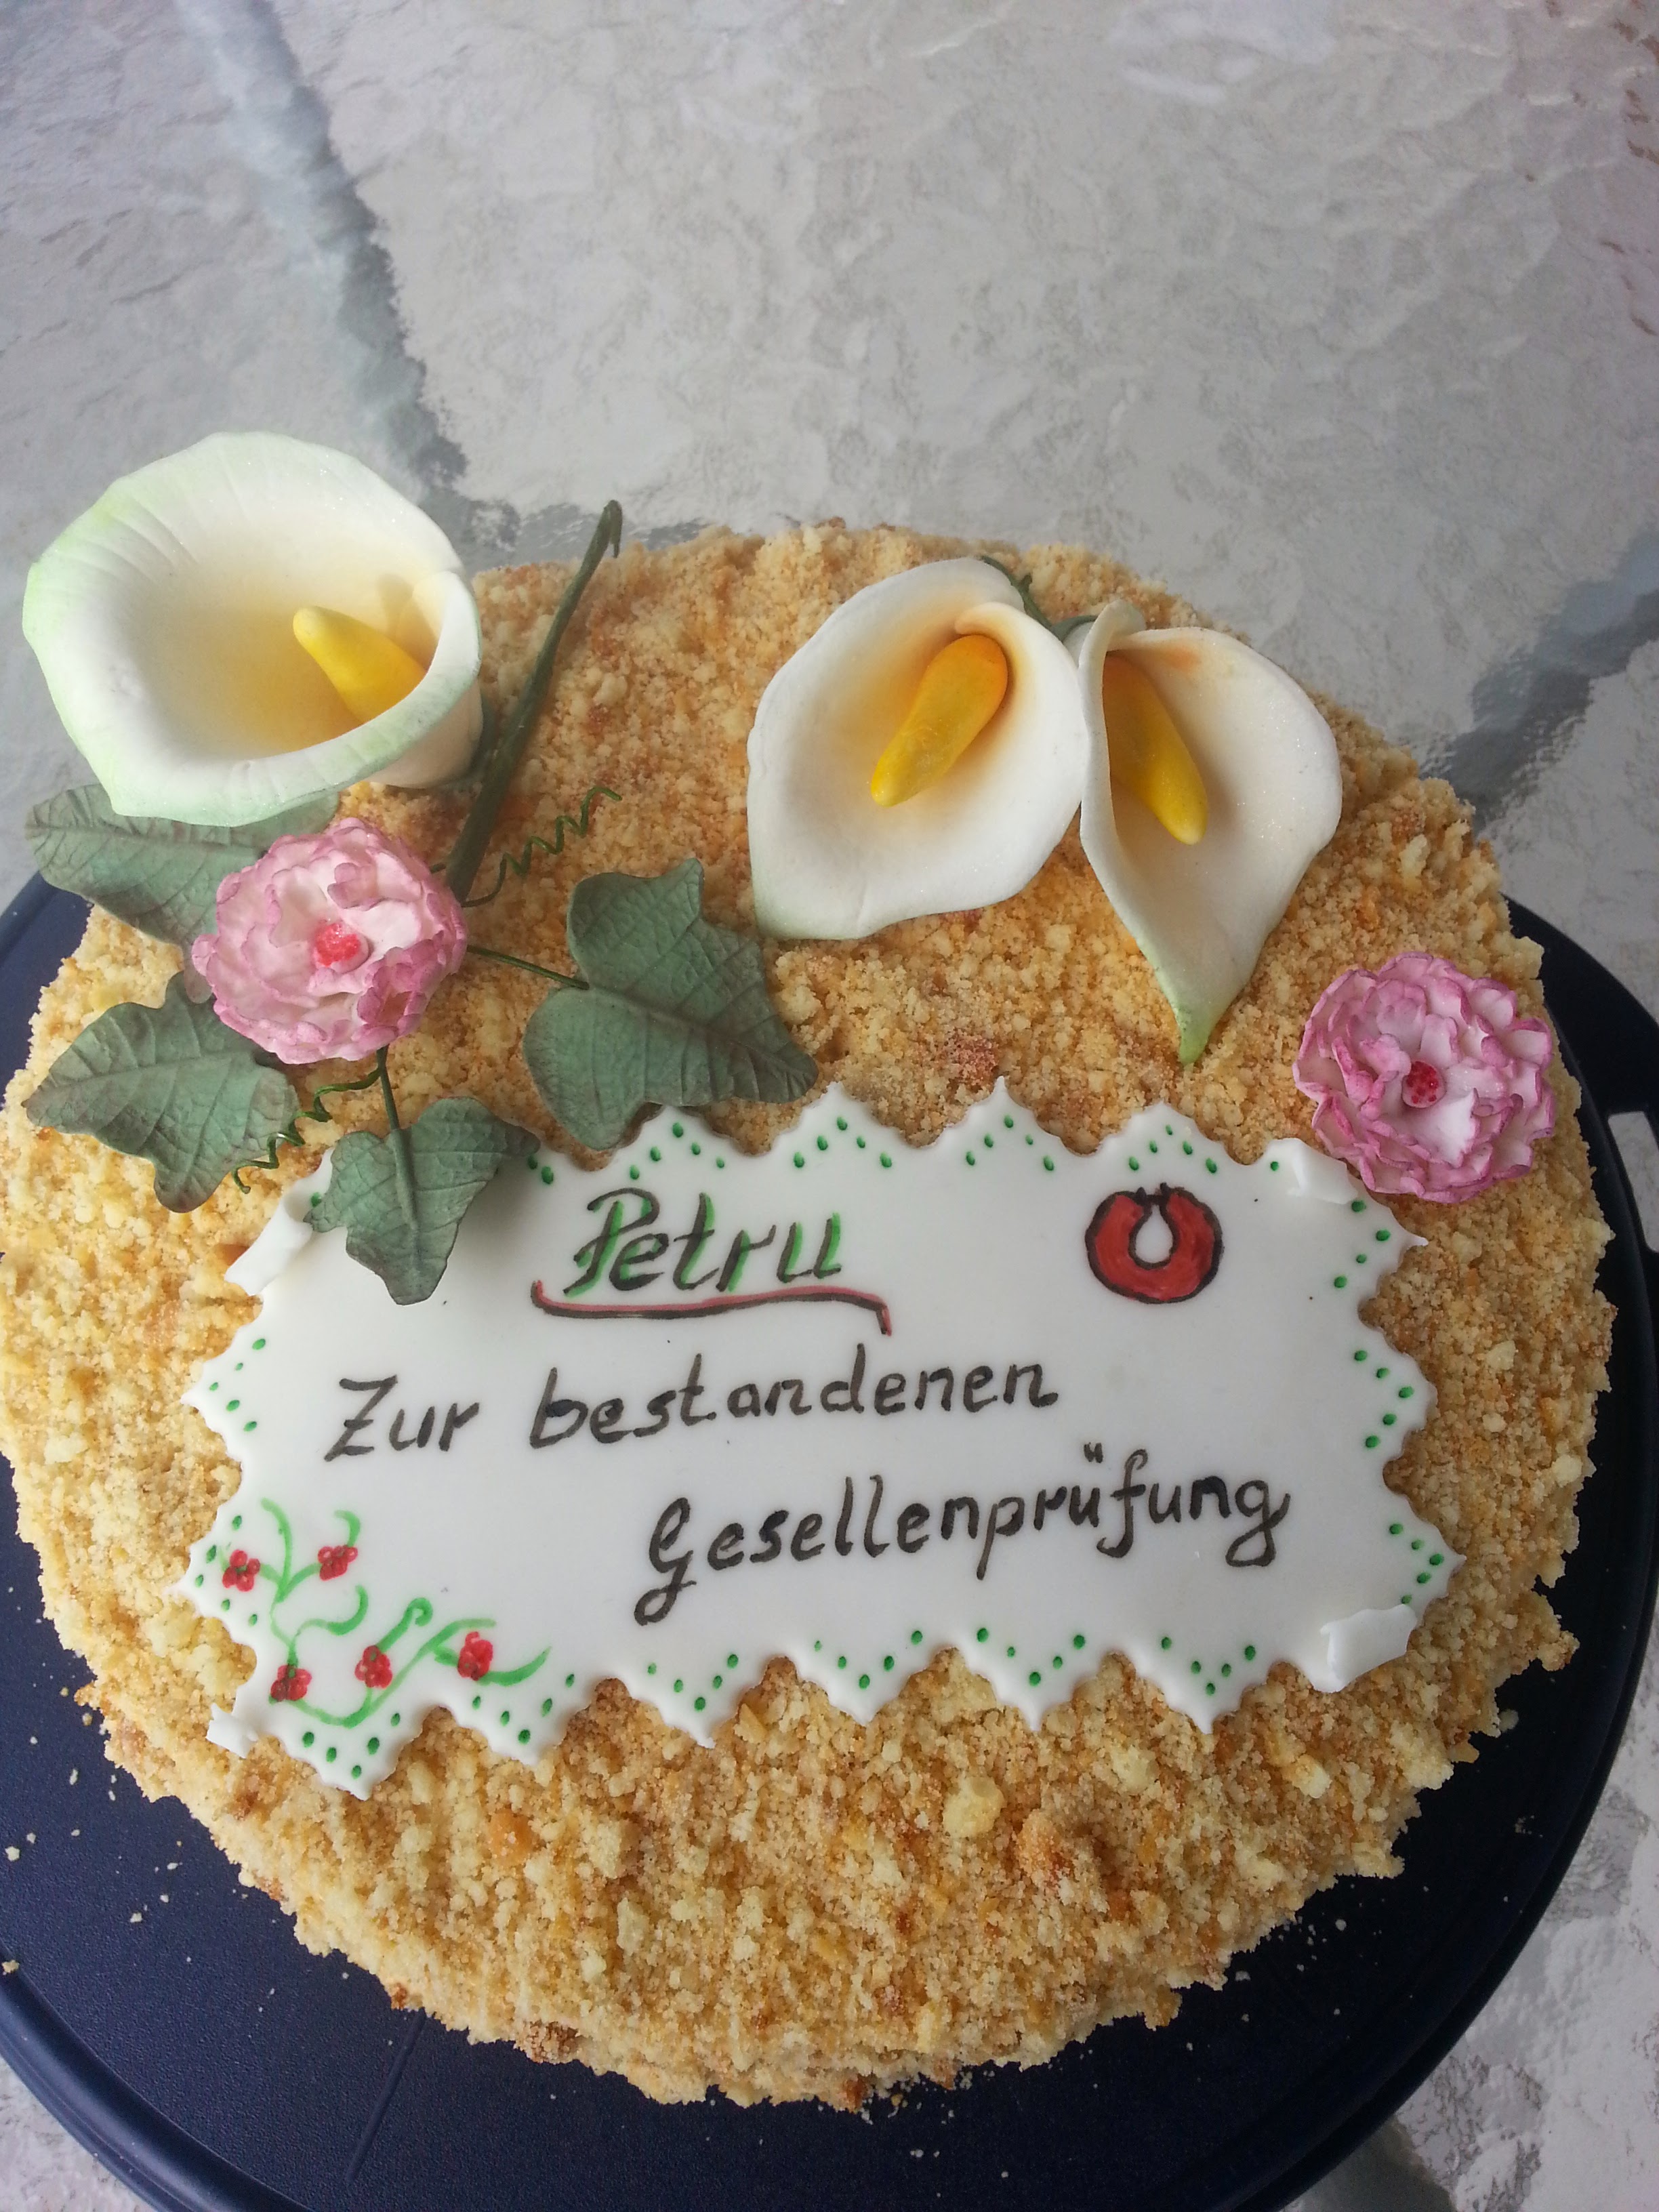 Petru
Zur bestandenen
Gesellenprüfung